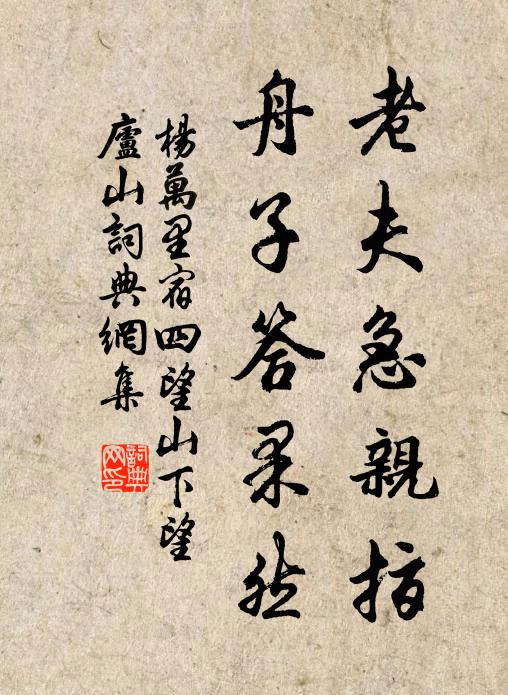 老夫急親指
舟子答果然
楊萬里宿四望山下望
廬山詞典網集
詞典
网印